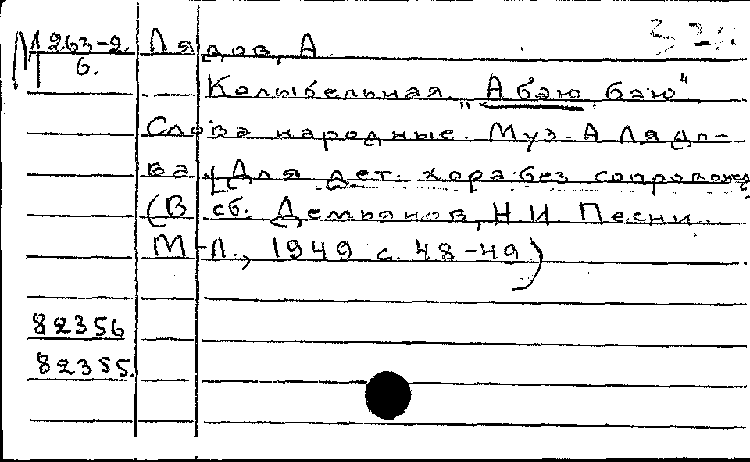 М 263-2 Лядов, А.
6.
Колыбельная. „А баю, баю"
Слова народные. Муз. А Лядо-
ва. (Для дет. хора без сопровожд
(В сб. Демьянов, Н И Песни.
М-Л., 1949 с. 48-49)
82356
82355.